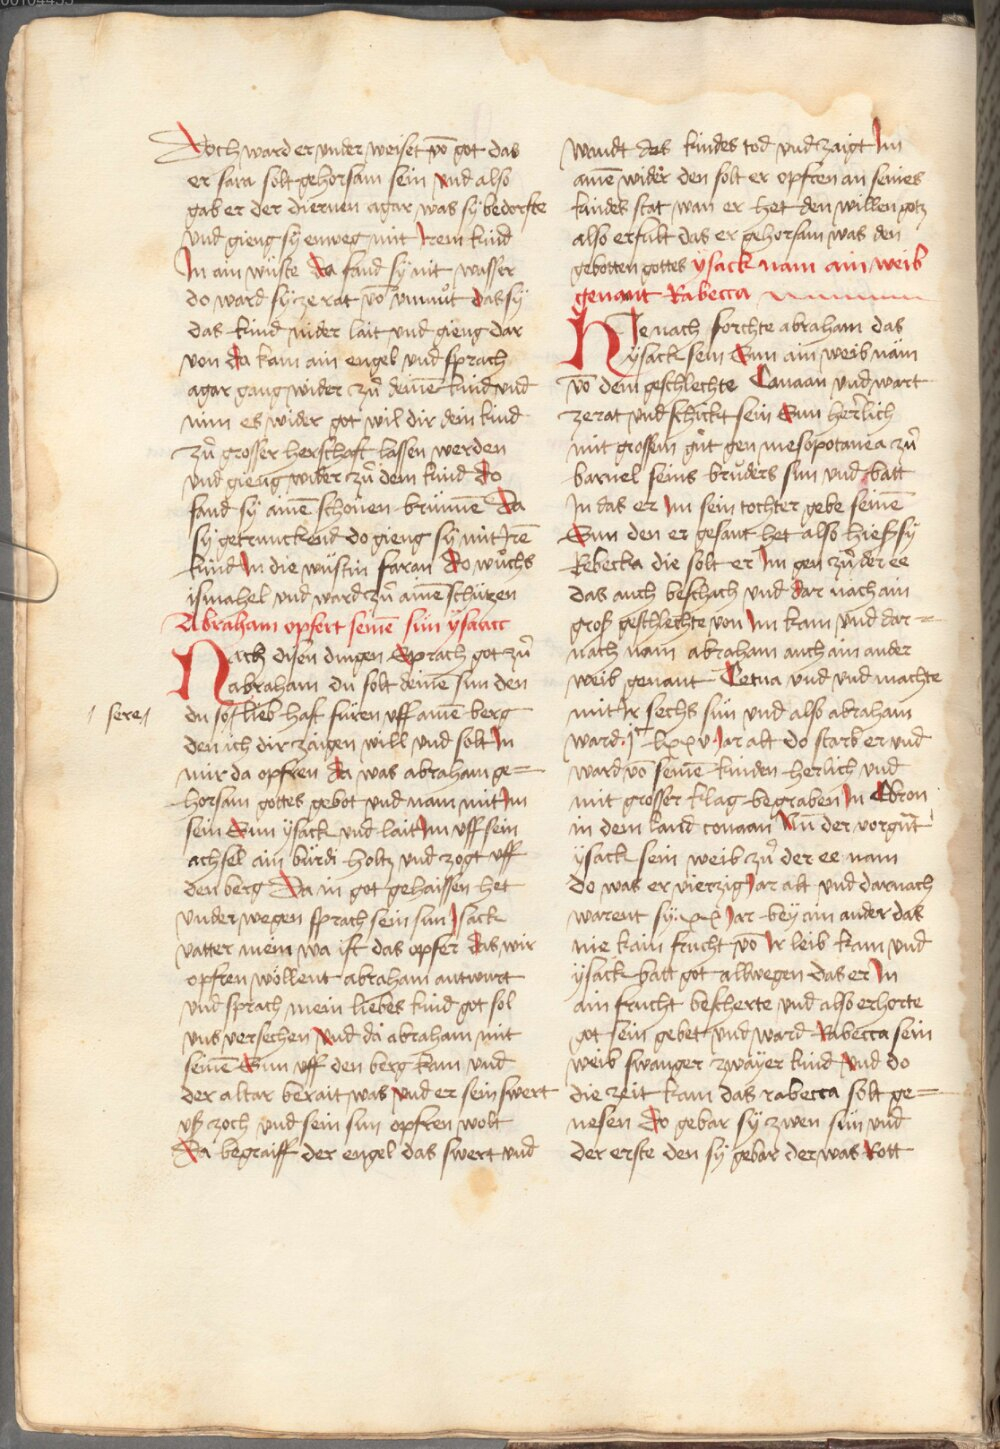 Doch ward er vnder weiset vō got das
er sara solt gehorsam sein vnd also
gab er der diernen agar was sy bedorfte
vnd gieng sy enweg mit Irem kind
In ain wüste Da fand sy nit wasser
do ward sy ze rat vō vnmůt das sy
das kind nider lait vnd gieng dar
von Da kam ain engel vnd sprach
agar gang wider zů deinē kind vnd
nim es wider got wil dir dein kind
zů grosser herschaft lassen werden
vnd gieng wider zů dem kind do
fand sy ainē schönen brunnē Da
sy getrunckend do gieng sy mit Irē
kind In die wüstin faran do wůchs
ismahel vnd ward zů ainē schützen
Abraham opfert seinē sun ysaac
Nach disen dingen Sprach got zů
abraham du solt deinē sun den
sere
du so lieb hast füren vff ainē berg
den ich dir zaigen will vnd solt In
mir da opfren da was abraham ge=
horsam gottes gebot vnd nam mit Im
sein Sun ysack vnd lait Im vff sein
achsel ain bürdi holtz vnd zogt vff
den berg Da in got gehaissen het
vnder wegen sprach sein sun Isack
vatter mein wa ist das opfer das wir
opfren wöllent abraham antwurt
vnd sprach mein liebes kind got sol
vns versechen vnd da abraham mit
seinē Sun vff den berg kam vnd
der altar berait was vnd er sein swert
vß zoch vnd sein sun opfren wolt
Da begraiff der engel das swert vnd
wandt des kindes tod vnd zaigt Im
ainē wider den solt er opfren an seines
kindes stat wan er het den willen gotz
also erfült das er gehorsam was den
gebotten gottes ysack nam ain weib
genant Rabecca
HIe nach forchte abraham das
ysack sein Sun ain weib näm
vō dem geschlechte Canaan vnd wart
ze rat vnd schickt sein Sun herlich
mit grossem gůt gen mesopotanea zů
barnel seins brůders sun vnd batt
In das er Im sein tochter gebe seinē
Sun den er gesant het also hieß sy
Rebecka die solt er Im gen zů der ee
das auch beschach vnd dar nach ain
groß geschlechte von Im kam vnd dar=
nach nam abraham auch ain ander
weib genant Cetua vnd vnd machte
mit Ir sechs sun vnd also abraham
ward jc lxxv jar alt do starb er vnd
ward vō seinē kinden herlich vnd
mit grosser klag begraben In Ebron
in dem land conaan Nū der vorgnt
ysack sein weib zů der ee nam
do was er vierzig Jar alt vnd darnach
warent sy xx Jar bey ain ander das
nie kain frucht vō Ir leib kam vnd
ysack batt got allwegen das er In
ain frucht bescherte vnd also erhorte
got sein gebet vnd ward Rabecca sein
weib swanger zwayer kind vnd do
die zeit kam das rabecca solt ge=
nesen do gebar sy zwen sün vnd
der erste den sy gebar der was Rott